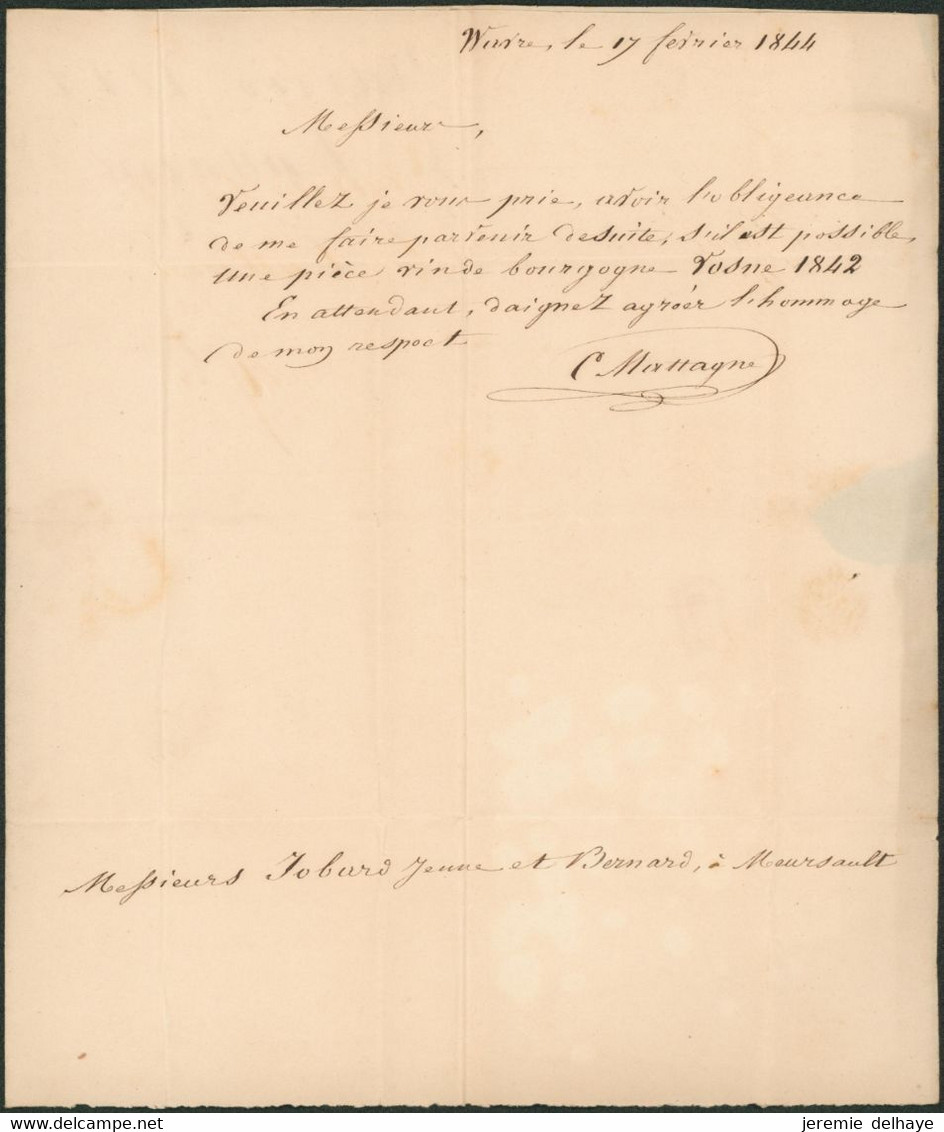 Wavre, le 17 fevrier 1844
Messieurs,
Veuillez je vous prie, avoir l'obligeance
de me faire parvenir desuite, s'il est possible,
une pièce vin de bourgogne Vosne 1842
En attendant, daignez agréer l'hommage
de mon respect
C Mattagne
Messieurs Jobard Jeune et Bernard, à Meursault
jeremie delhaye